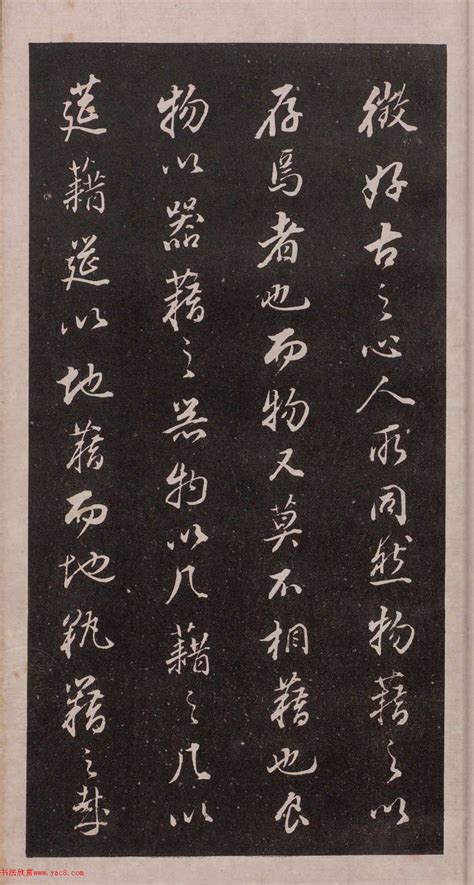 徵好古之心人所同然物藉之以
存焉者也而物又莫不相藉也食
物以器藉之器物以几藉之几以
筵藉筵以地藉而地孰藉之哉
书法欣赏www.yac8.com